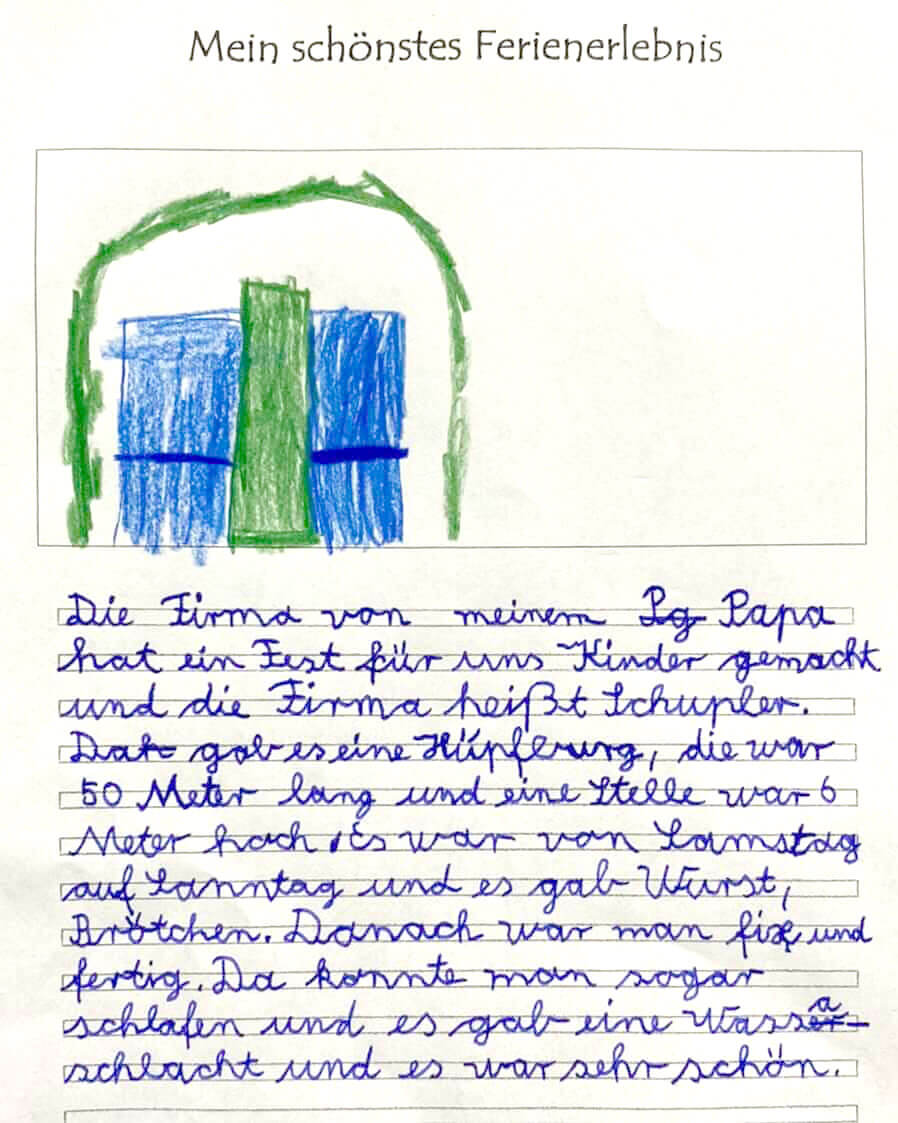 Mein schönstes Ferienerlebnis
Die Firma von meinem Papa
hat ein Fest für uns Kinder gemacht
und die Firma heißt Schupler.
gab es eine Hüpferurg, die war
50 Meter lang und eine Stelle war 6
Meter hoch. Es war von Samstag
auf Sonntag und es gab Wurst,
Brötchen. Danach war man fix und
fertig. Da konnte man sogar
schlafen und es gab eine Wassa-
schlacht und es war sehr schön.